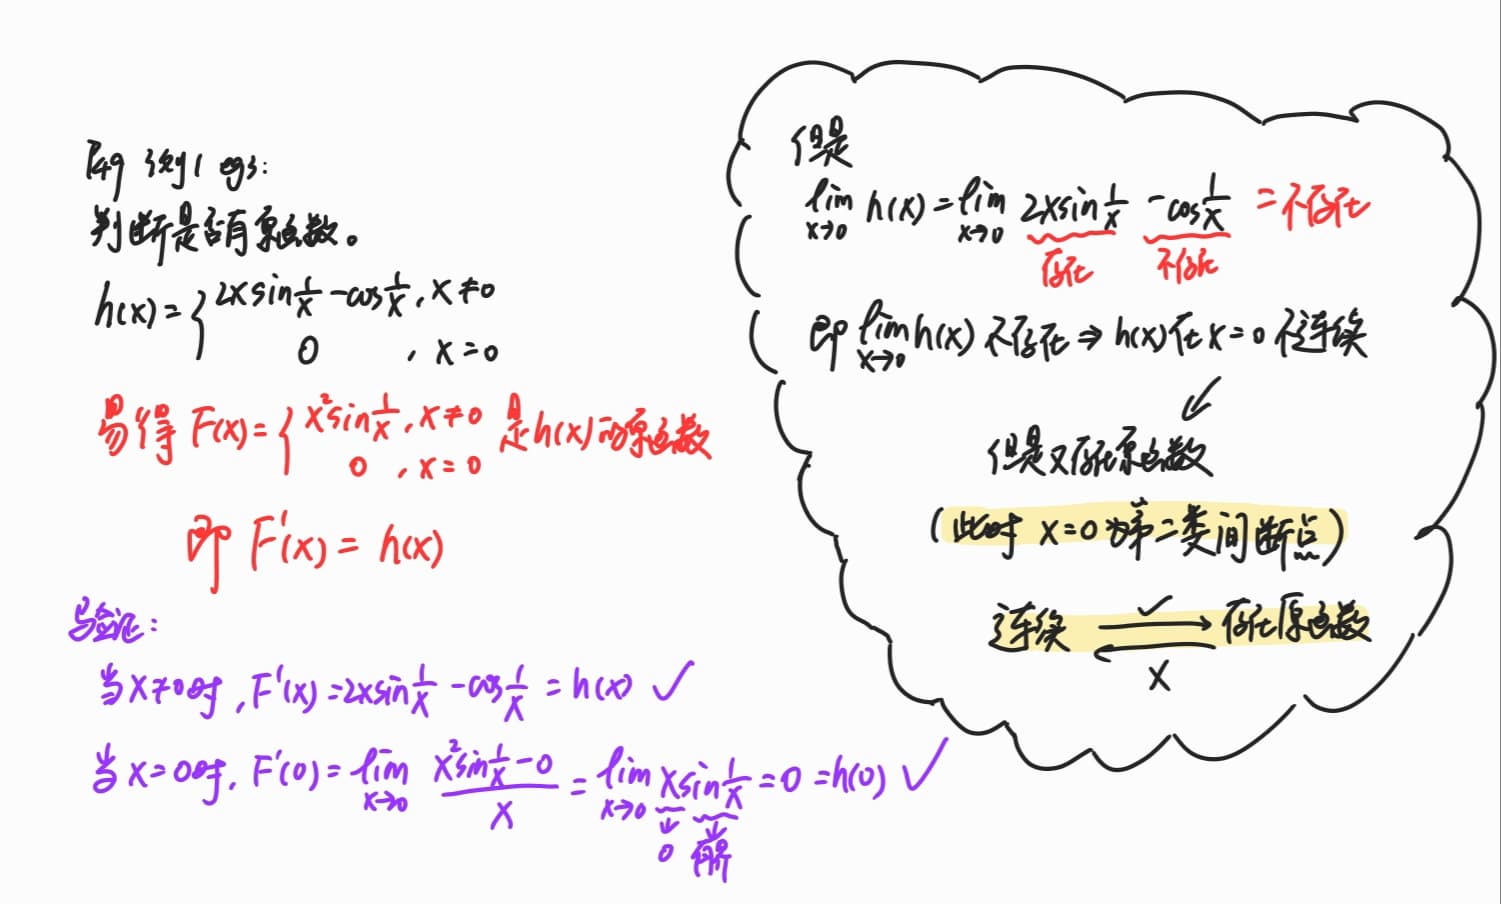 P49 例1 eg3:
判断是否有原函数。
h(x) = { 2x sin 1/x - cos 1/x , x ≠ 0
0 , x = 0
易得 F(x) = { x² sin 1/x , x ≠ 0 是 h(x) 的原函数
0 , x = 0
即 F'(x) = h(x)
验证:
当 x ≠ 0 时, F'(x) = 2x sin 1/x - cos 1/x = h(x) ✓
当 x = 0 时, F'(0) = lim x→0 (x² sin 1/x - 0)/x = lim x→0 x sin 1/x = 0 = h(0) ✓
↓ ↓
0 有界
但是
lim x→0 h(x) = lim x→0 2x sin 1/x - cos 1/x = 不存在
存在 不存在
即 lim x→0 h(x) 不存在 ⇒ h(x) 在 x = 0 不连续
↙
但是又存在原函数
(此时 x = 0 为第二类间断点)
✓
连续 ⇄ 存在原函数
×